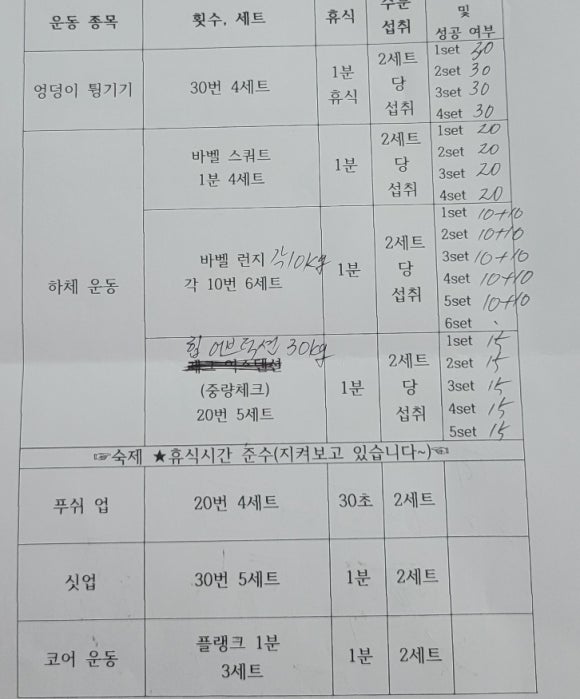 운동 종목 횟수, 세트 휴식 수분 섭취 및 성공 여부
엉덩이 튕기기
30번 4세트
1분
휴식
2세트
당
섭취
1set 30
2set 30
3set 30
4set 30
하체 운동
바벨 스쿼트
1분 4세트
1분
2세트
당
섭취
1set 20
2set 20
3set 20
4set 20
바벨 런지 각10kg
각 10번 6세트
1분
2세트
당
섭취
1set 10+10
2set 10+10
3set 10+10
4set 10+10
5set 10+10
6set .
힙 어브덕션 30kg
(중량체크)
20번 5세트
1분
2세트
당
섭취
1set 15
2set 15
3set 15
4set 15
5set 15
☞숙제 ★휴식시간 준수(지켜보고 있습니다~)☜
푸쉬 업 20번 4세트 30초 2세트
싯업 30번 5세트 1분 2세트
코어 운동
플랭크 1분
3세트
1분
2세트